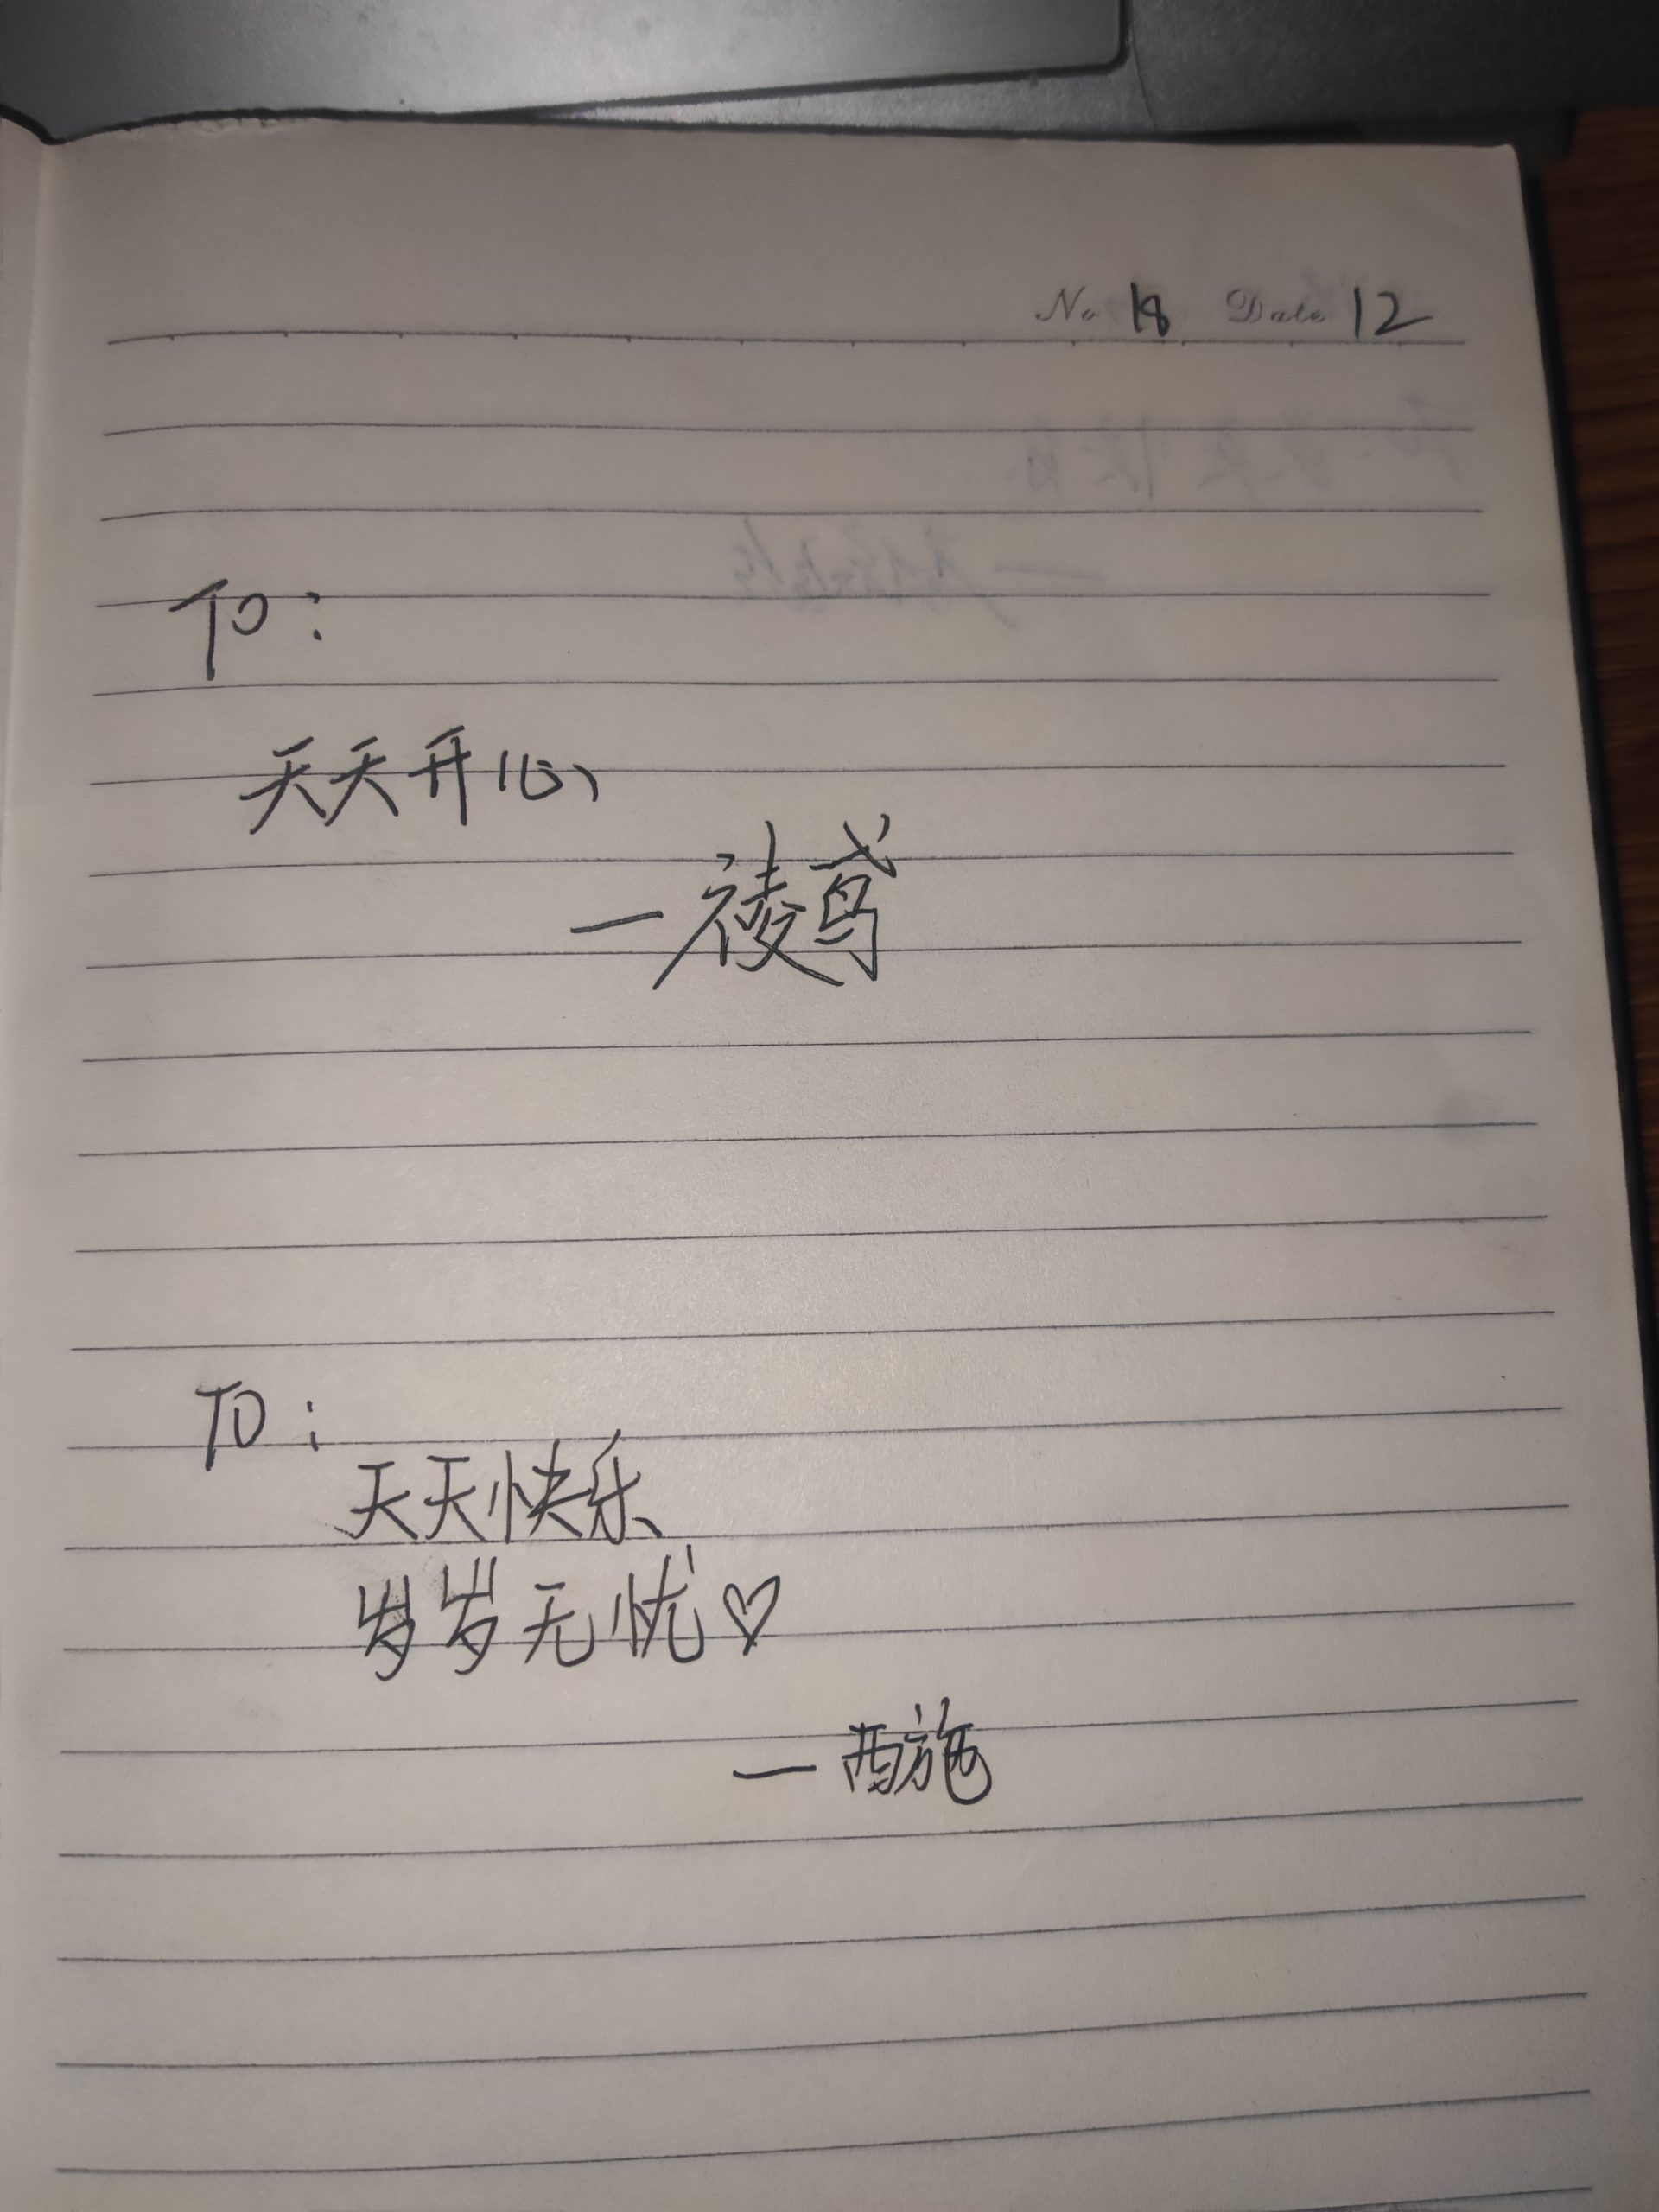 No 18 Date 12
To:
天天开心
一祾鸢
TO:
天天快乐
岁岁无忧♡
一西施